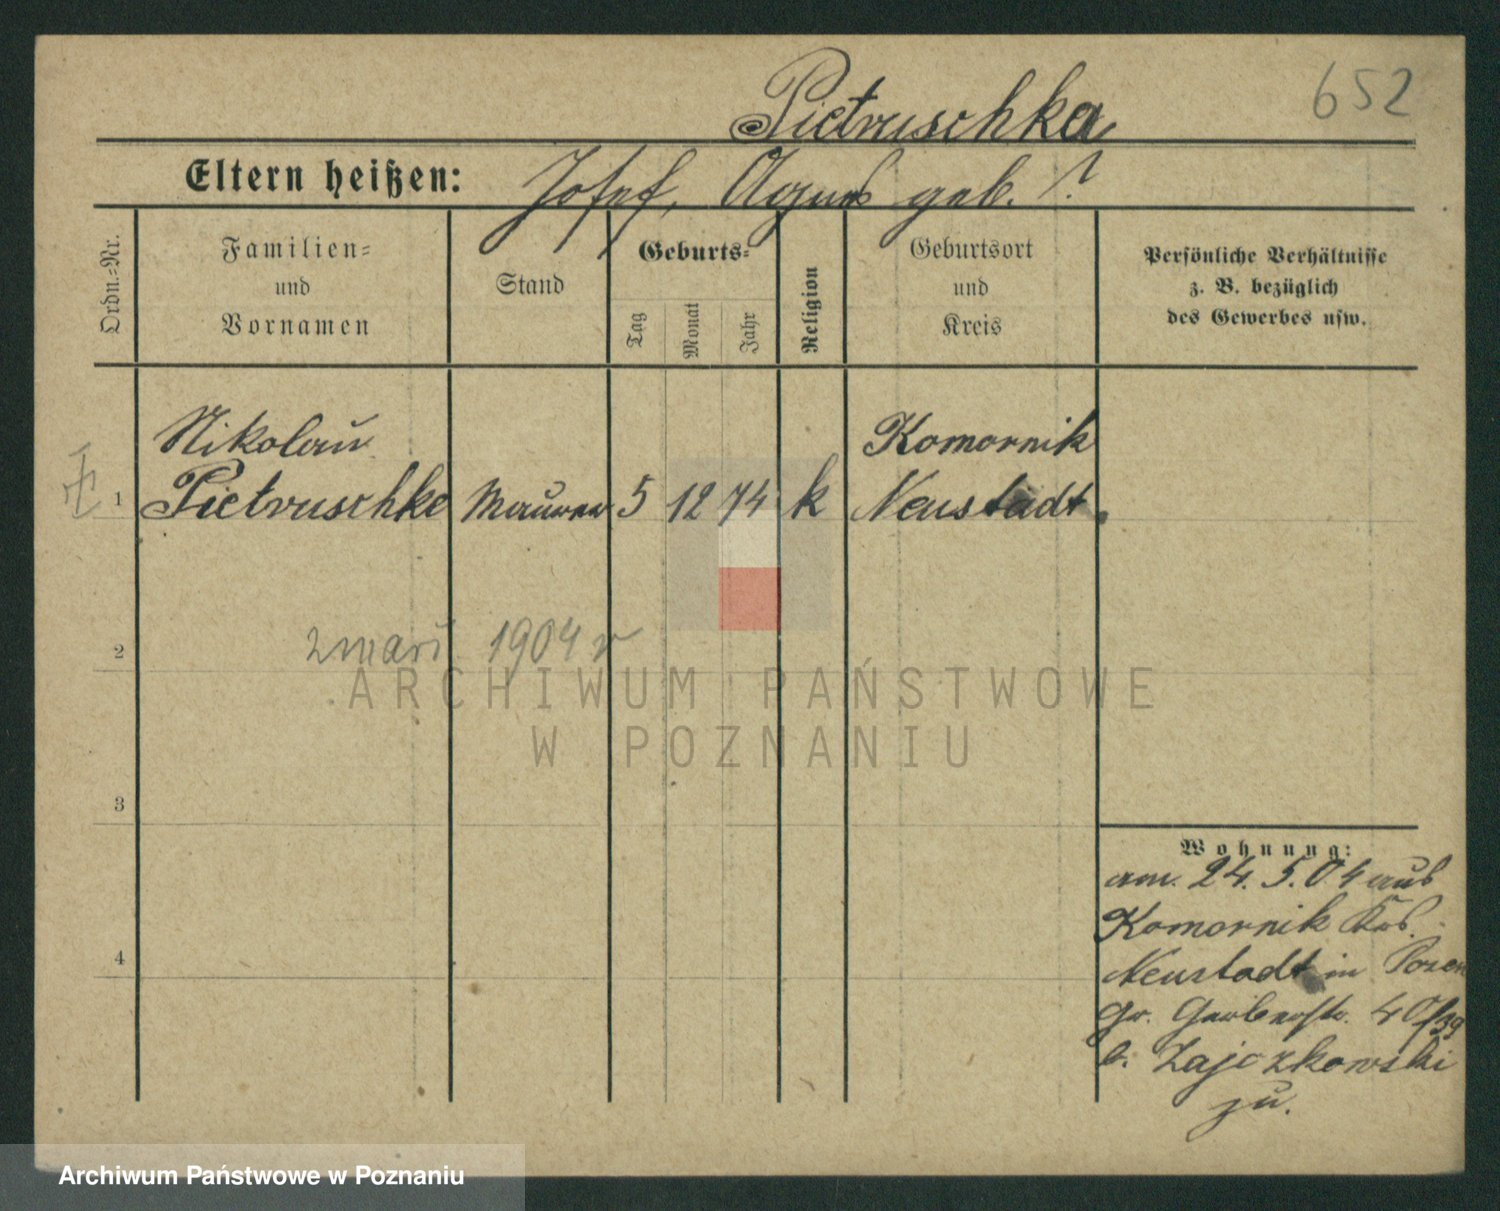 Pietruschka
652
Eltern heißen: Josef, Agnes geb. ?
Ordn.=Nr.
Familien=
und
Vornamen
Stand
Geburts=
Tag
Monat
Jahr
Religion
Geburtsort
und
Kreis
Persönliche Verhältnisse
z. B. bezüglich
des Gewerbes usw.
Nikolaus Komornik
1 Pietruschke Maurer 5 12 74 k Neustadt
2 zmarł 1904 r
ARCHIWUM PAŃSTWOWE
W POZNANIU
3
Wohnung:
am 24. 5. 04 aus
Komornik Krs.
4
Neustadt in Posen
Gr. Gerberstr. 40/39
b. Zajczkowski
zu.
Archiwum Państwowe w Poznaniu